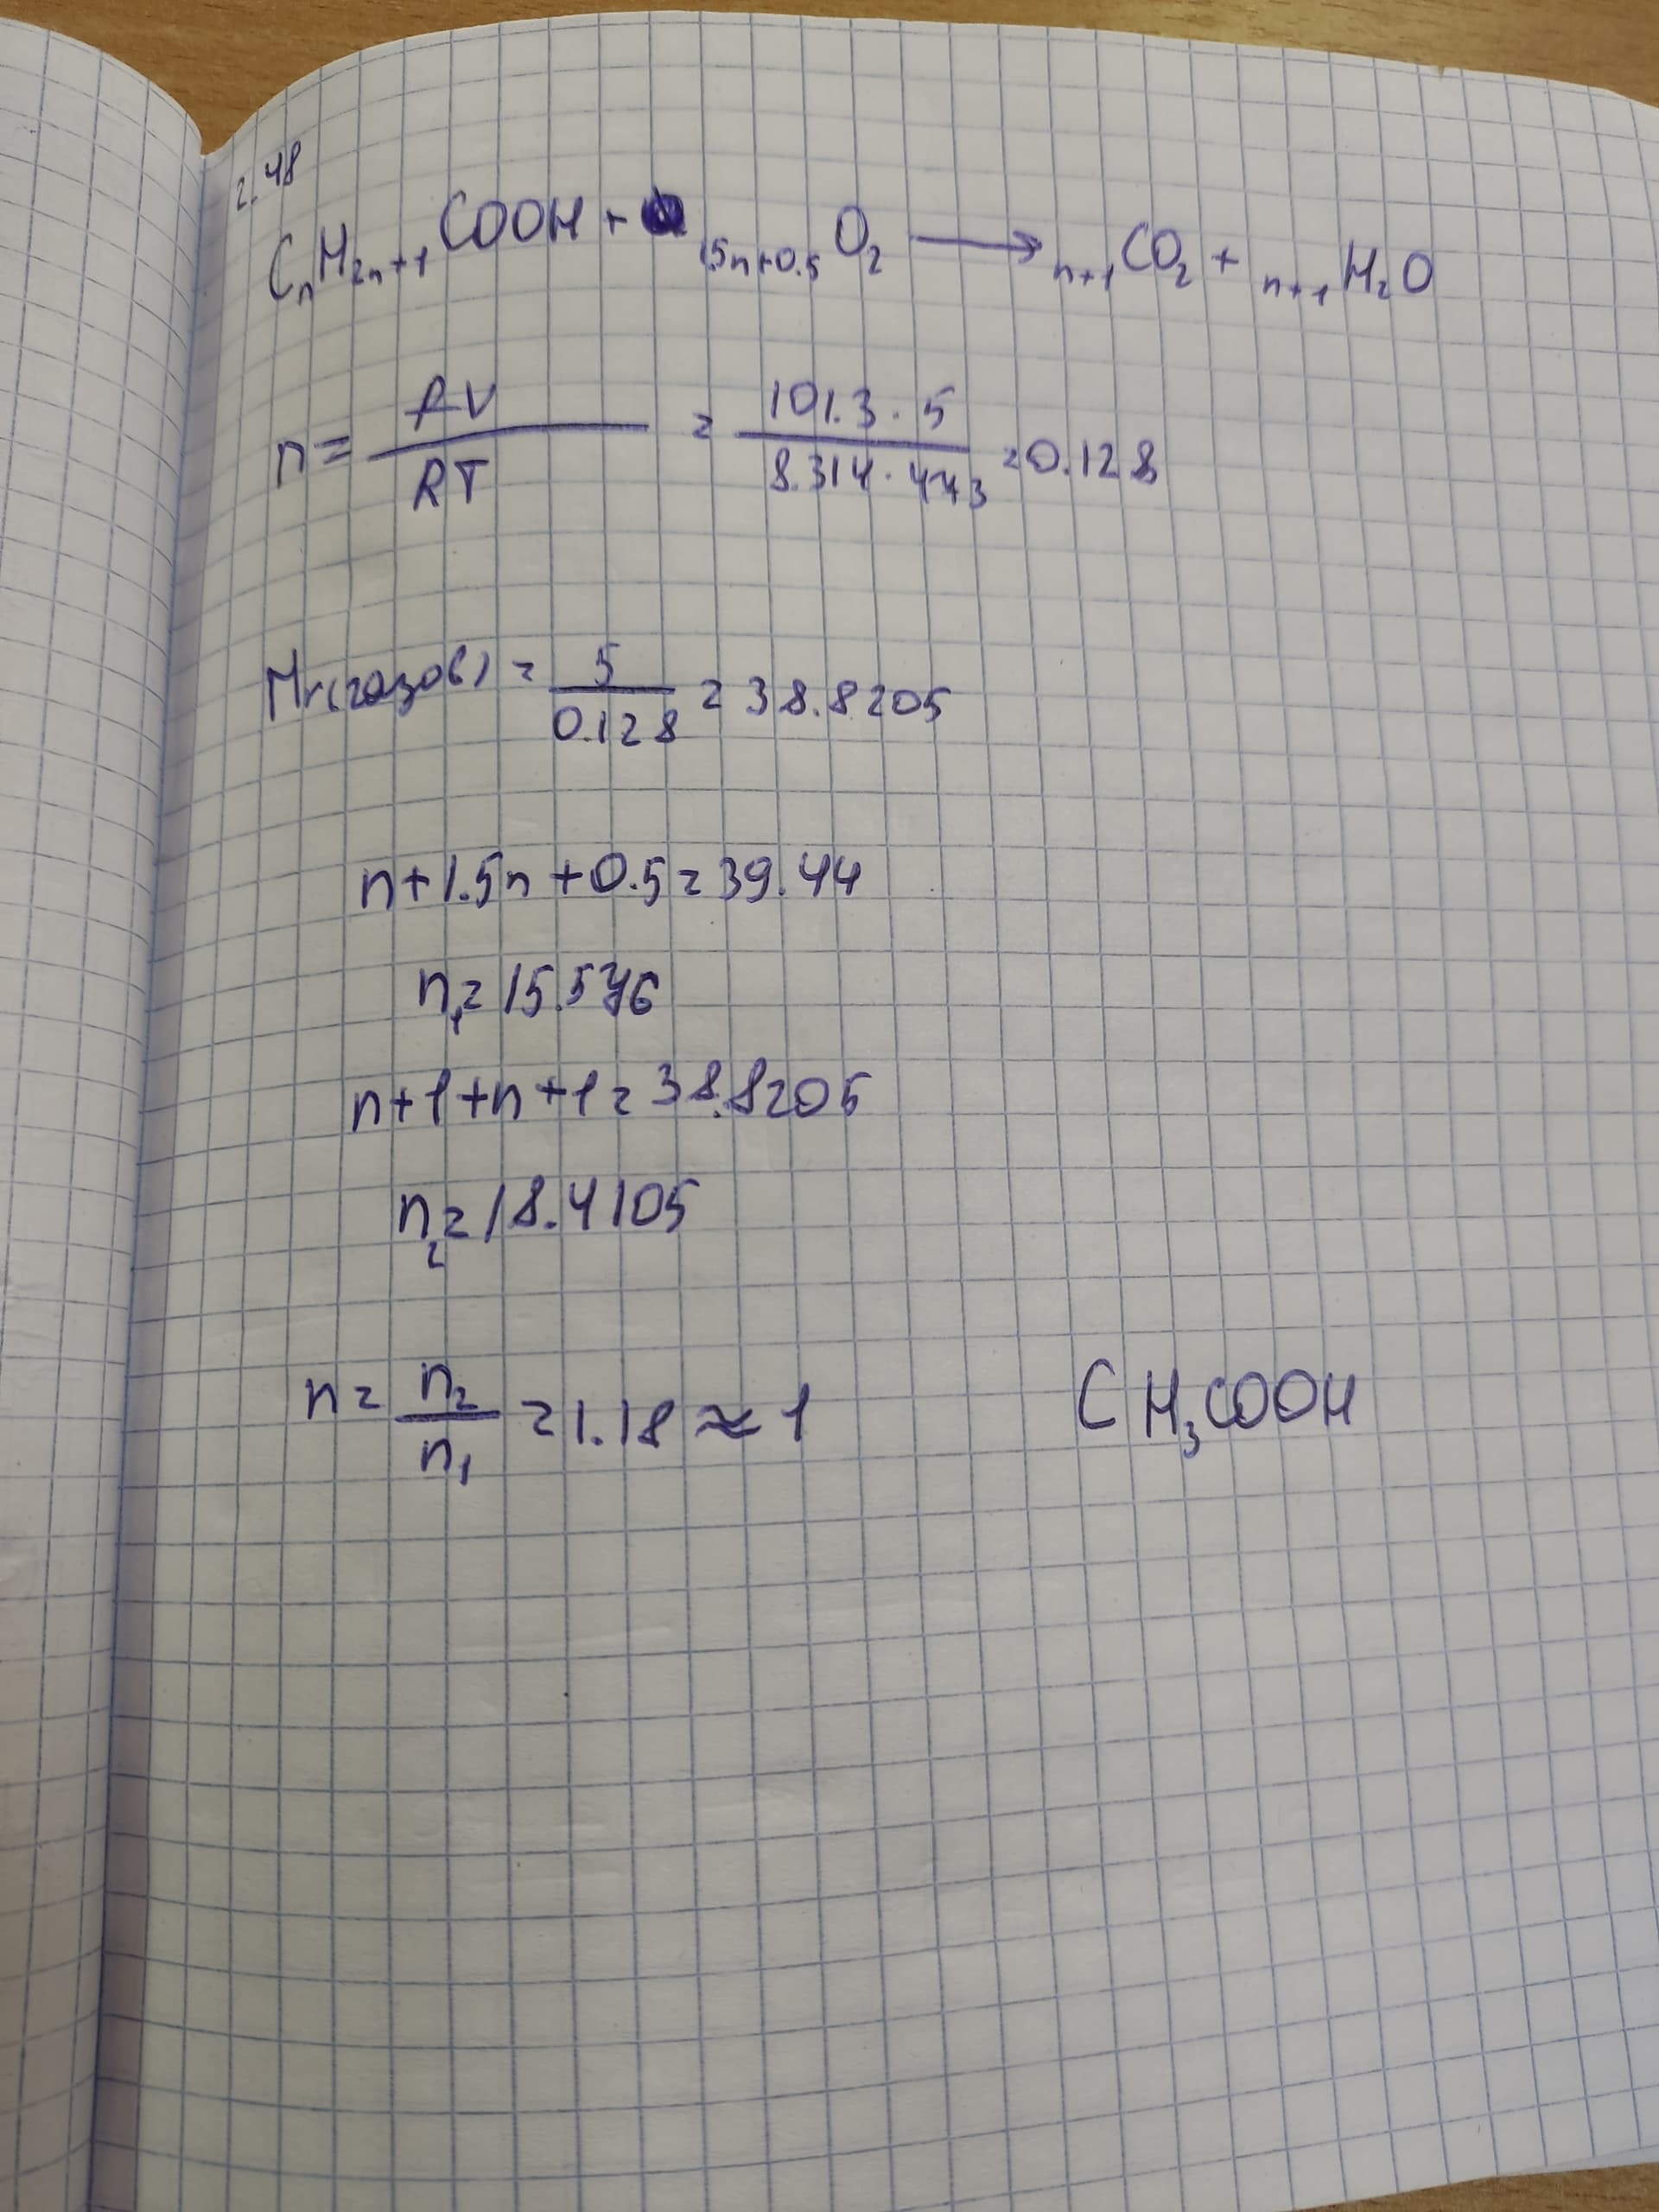 2.48
CnH2n+1COOH + 1.5n+0.5 O2 → n+1 CO2 + n+1 H2O
n = PV / RT = 101.3 · 5 / 8.314 · 473 = 0.128
Mr(газов) = 5 / 0.128 = 38.8205
n+1.5n+0.5=39.44
n1=15.576
n+1+n+1=38.8205
n2=18.4105
n= n2 / n1 =1.18 ≈ 1 CH3COOH